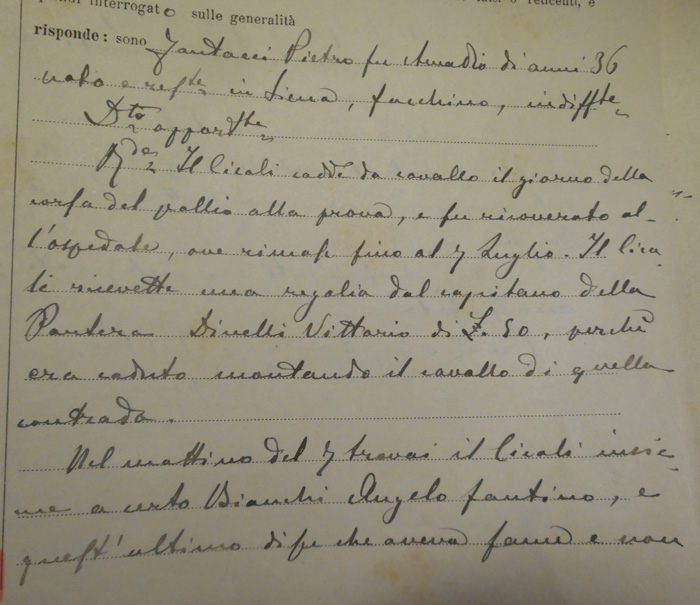 interrogato sulle generalità
risponde: sono Jantacci Pietro fu Amadio di anni 36
nato e resste in Siena, facchino, indiffte
Dto appartte
Rde Il Cicali cadde da cavallo il giorno della
corsa del pallio alla prova, e fu ricoverato al-
l'ospedale, ove rimase fino al 7 Luglio. Il Cica
li ricevette una regalia dal capitano della
Pantera Dinelli Vittorio di £. 50, perchè
era caduto montando il cavallo di quella
contrada.
Nel mattino del 7 trovai il Cicali insie-
me a certo Bianchi Angelo fantino, e
quest'ultimo disse che aveva fame e non